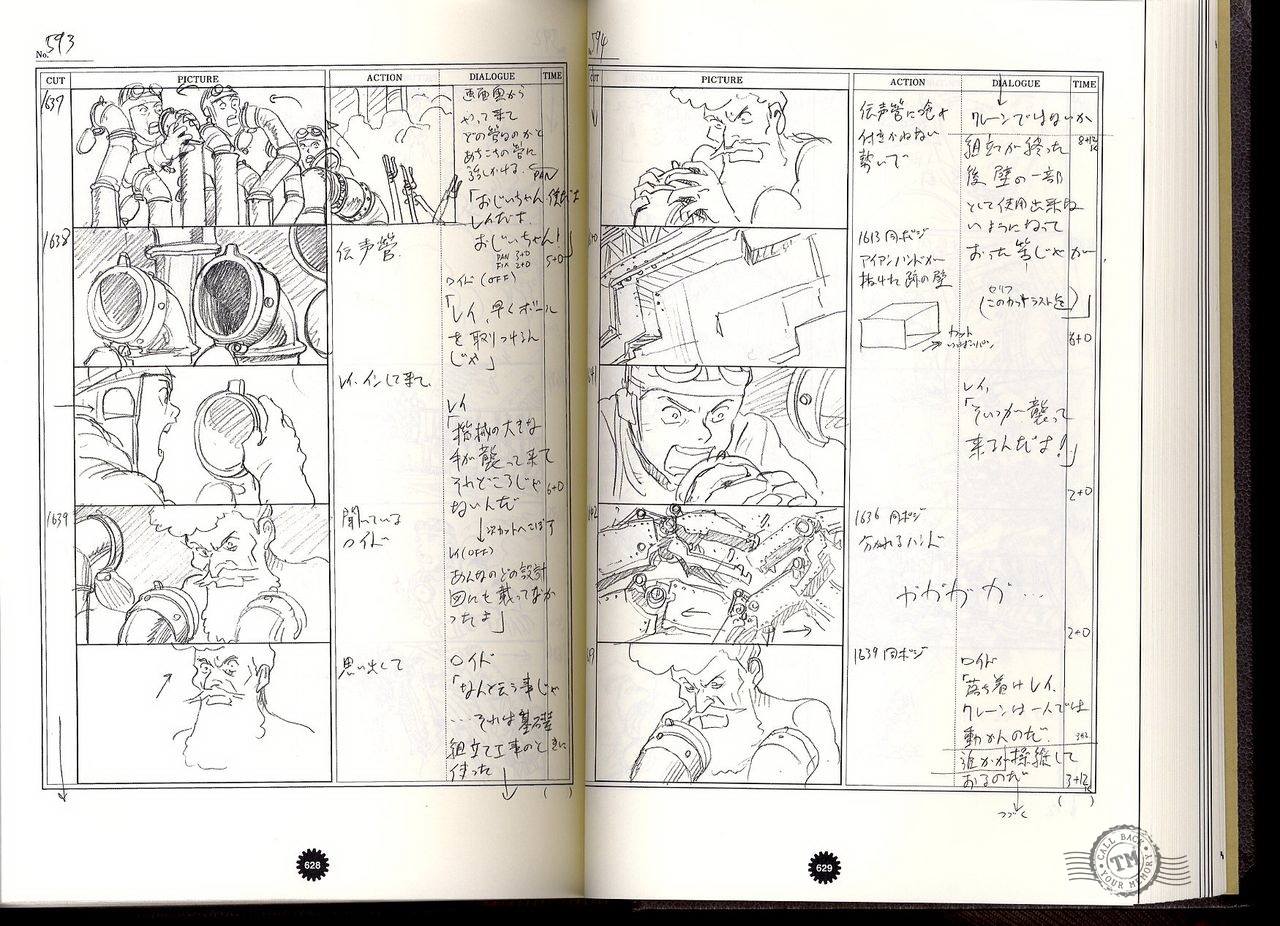 No. 593
CUT PICTURE ACTION DIALOGUE TIME
1637
画面奥から
やって来て
どの管なのかと
あちこちの管に
話しかける
PAN
「おじいちゃん 僕だよ
レイだよ
おじいちゃん!」
PAN 3+0
FIX 2+0
5+0
1638
伝声管
ロイド(OFF)
「レイ、早くボール
を取りつけるん
じゃ」
レイ、インして来て、
レイ
「機械の大きな
手が襲って来て
それどころじゃ
ないんだ
6+0
次カットへこぼす
1639
聞いている
ロイド
レイ(OFF)
あんなのどの設計
図にも載ってなか
ったよ」
思い出して
ロイド
「なんと云う事じゃ
…それは基礎
組立て工事のときに
使った
( )
628
594
CUT PICTURE ACTION DIALOGUE TIME
伝声管に喰い
付きかねない
勢いで
クレーンではないか
8+12
組立が終った
後 壁の一部
として使用出来な
いようになって
おった筈じゃが
1613 同ポジ
アイアンハンドが
抜けた跡の壁
(このカットラスト迄)」
カット
いっぱいPAN
6+0
レイ、
「そいつが襲って
来るんだよ!」
2+0
1636 同ポジ
分かれるハンド
ガガガガ…
2+0
1639 同ポジ
ロイド
「落ち着けレイ、
クレーンは一人では
動かんのだ、
誰かが操縦して
おるのだ
3+12
( )
つづく
629
CALL BACK
TM
YOUR MEMORY